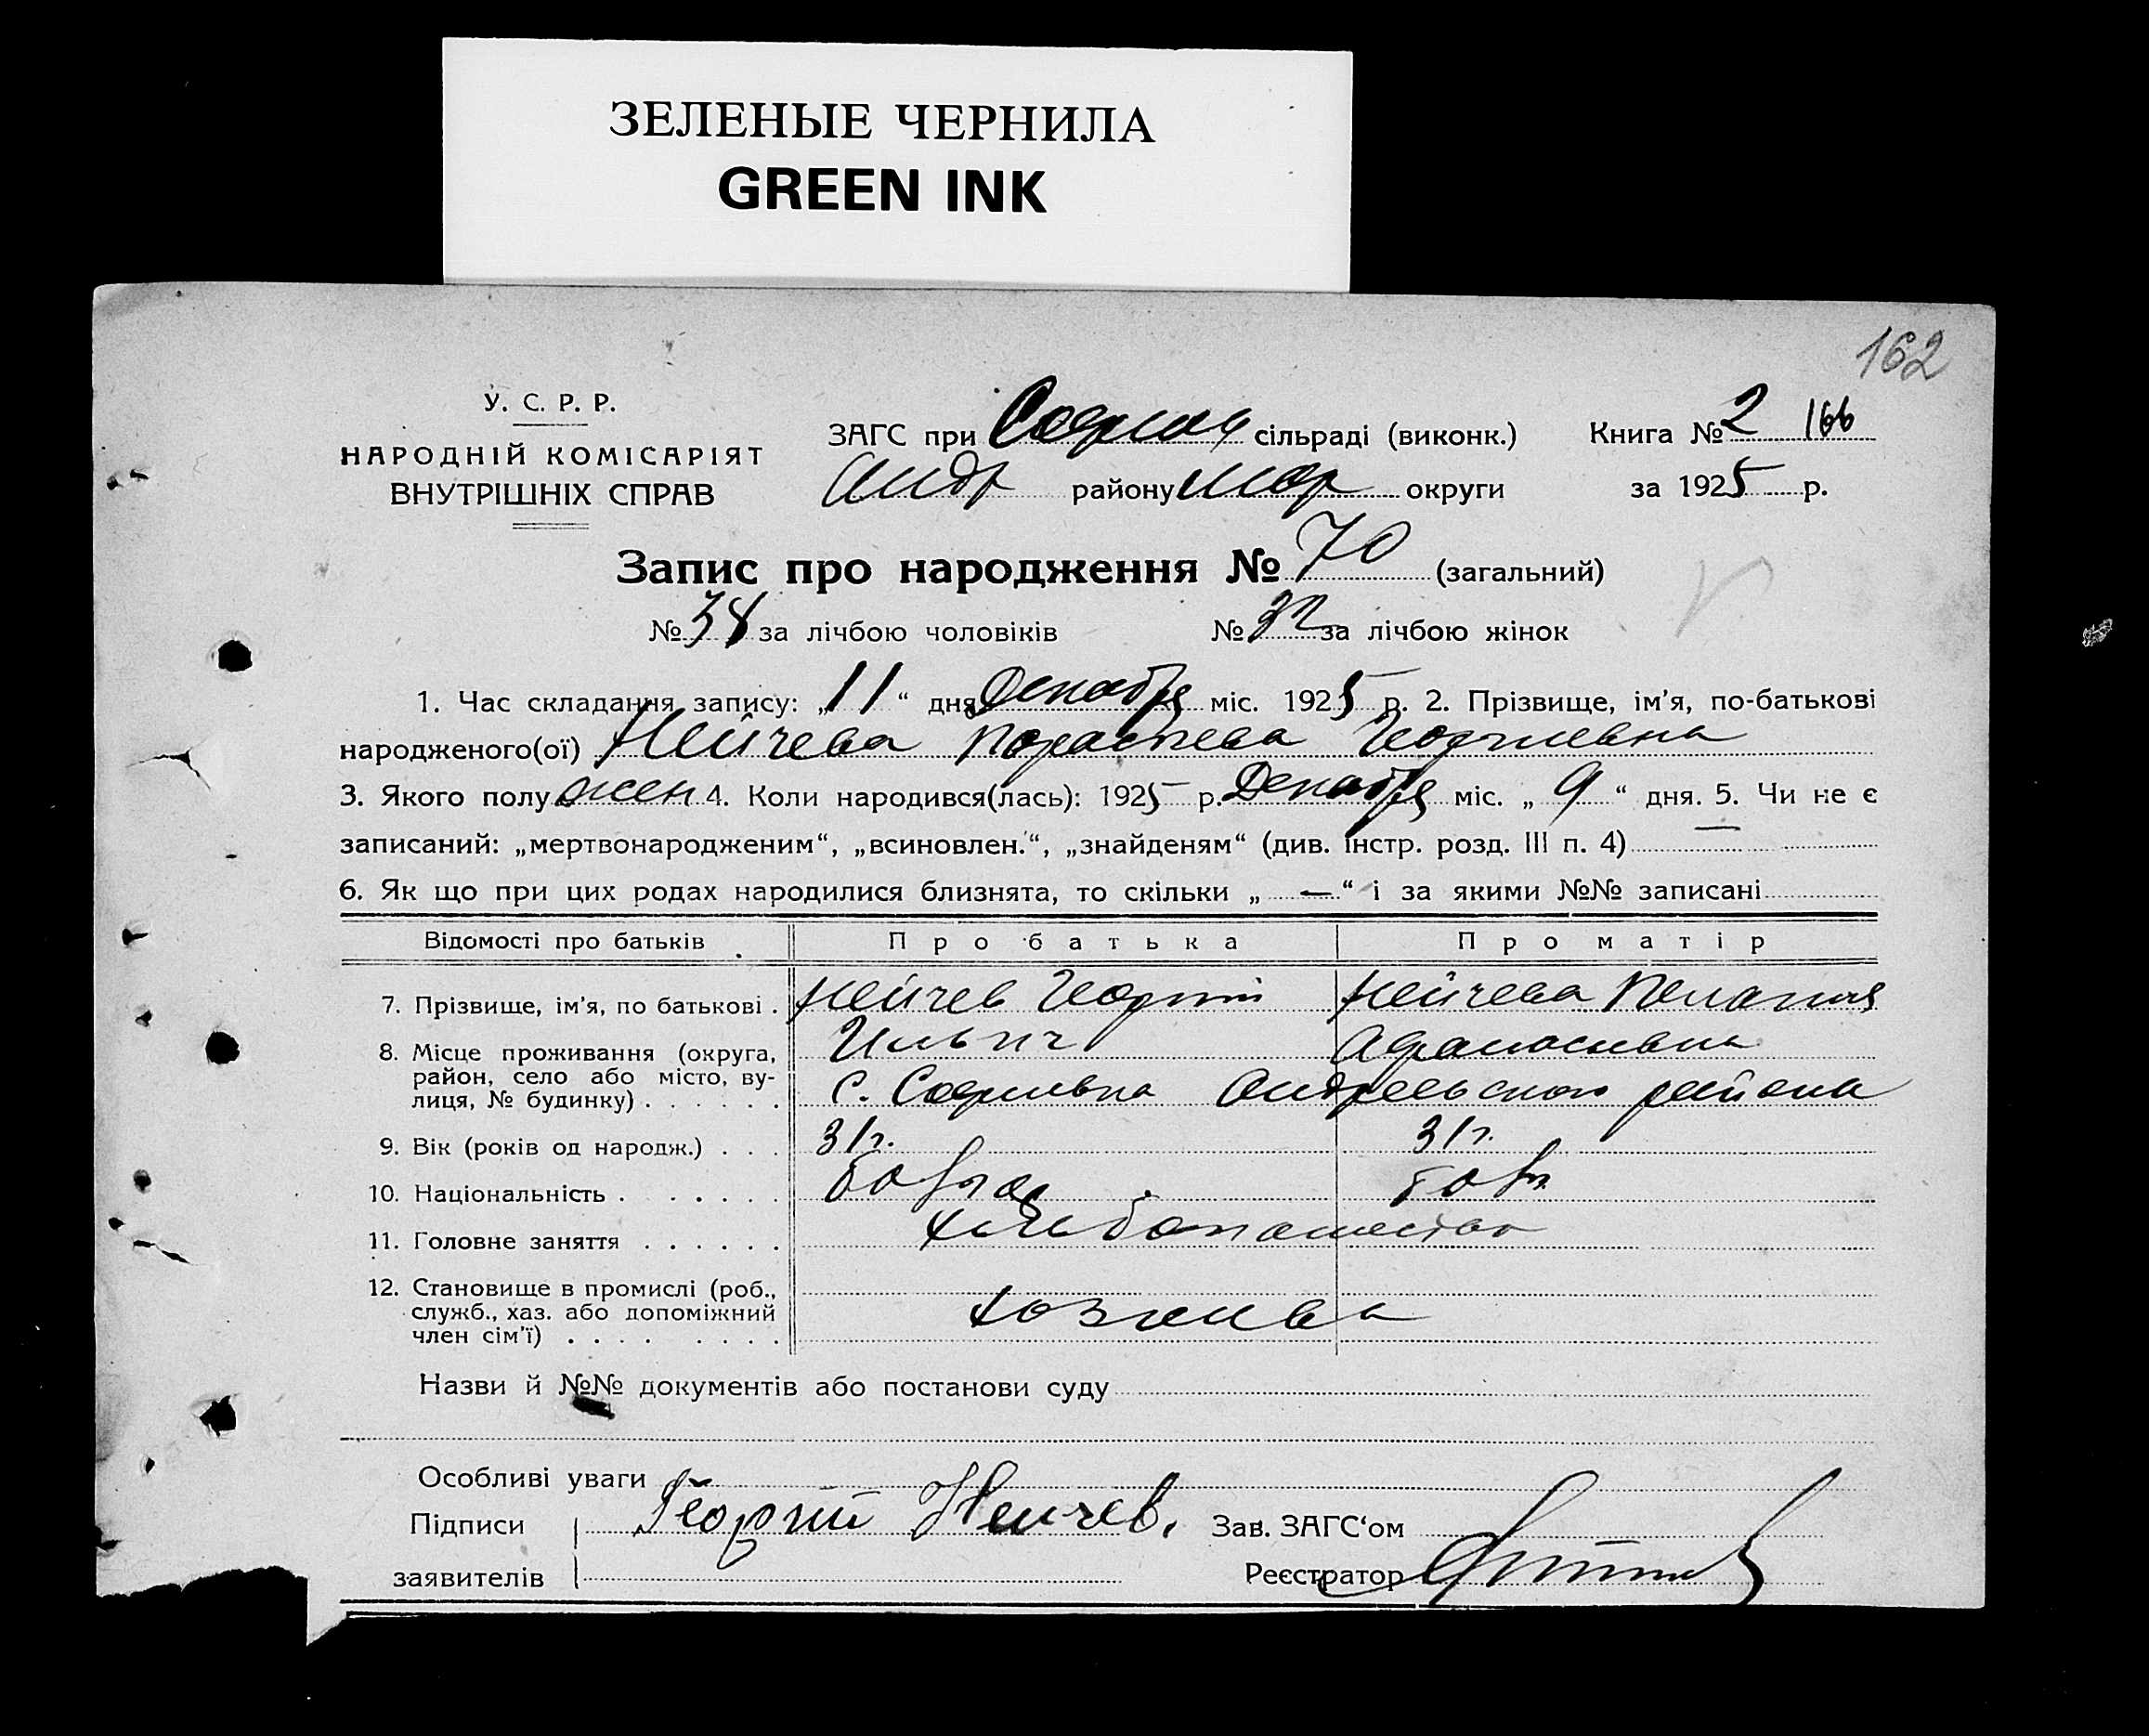 ЗЕЛЕНЫЕ ЧЕРНИЛА
GREEN INK
162
У. С. Р. Р.
НАРОДНІЙ КОМІСАРІЯТ
ВНУТРІШНІХ СПРАВ
ЗАГС при сільраді (виконк.) Книга № 2 166
Андр району Мар округи за 1925 р.
Запис про народження № 70 (загальний)
№ 38 за лічбою чоловіків № 32 за лічбою жінок
1. Час складання запису: „11“ дня Декабря міс. 1925 р. 2. Прізвище, ім'я, по-батькові
народженого(ої) Нейчева Георгиевна
3. Якого полу жен 4. Коли народився(лась): 1925 р. Декабря міс. „9“ дня. 5. Чи не є
записаний: „мертвонародженим“, „всиновлен.“, „знайденям“ (див. інстр. розд. III п. 4) —
6. Як що при цих родах народилися близнята, то скільки „—“ і за якими №№ записані
Відомості про батьків Про батька Про матір
7. Прізвище, ім'я, по батькові . Нейчев Георгий Нейчева Пелагия
Ильич Афанасьевна
8. Місце проживання (округа,
район, село або місто, ву-
лиця, № будинку) . . . . . . с. Софиевка Андреевского района
9. Вік (років од народж.) . . . 31 г. 31 г.
10. Національність . . . . . . . болг.
11. Головне заняття . . . . . . хлебопашество
12. Становище в промислі (роб.,
служб., хаз. або допоміжний
член сім'ї) . . . . . . . . хозяева
Назви й №№ документів або постанови суду
Особливі уваги
Підписи Георгій Нейчев. Зав. ЗАГС'ом
заявителів Реєстратор